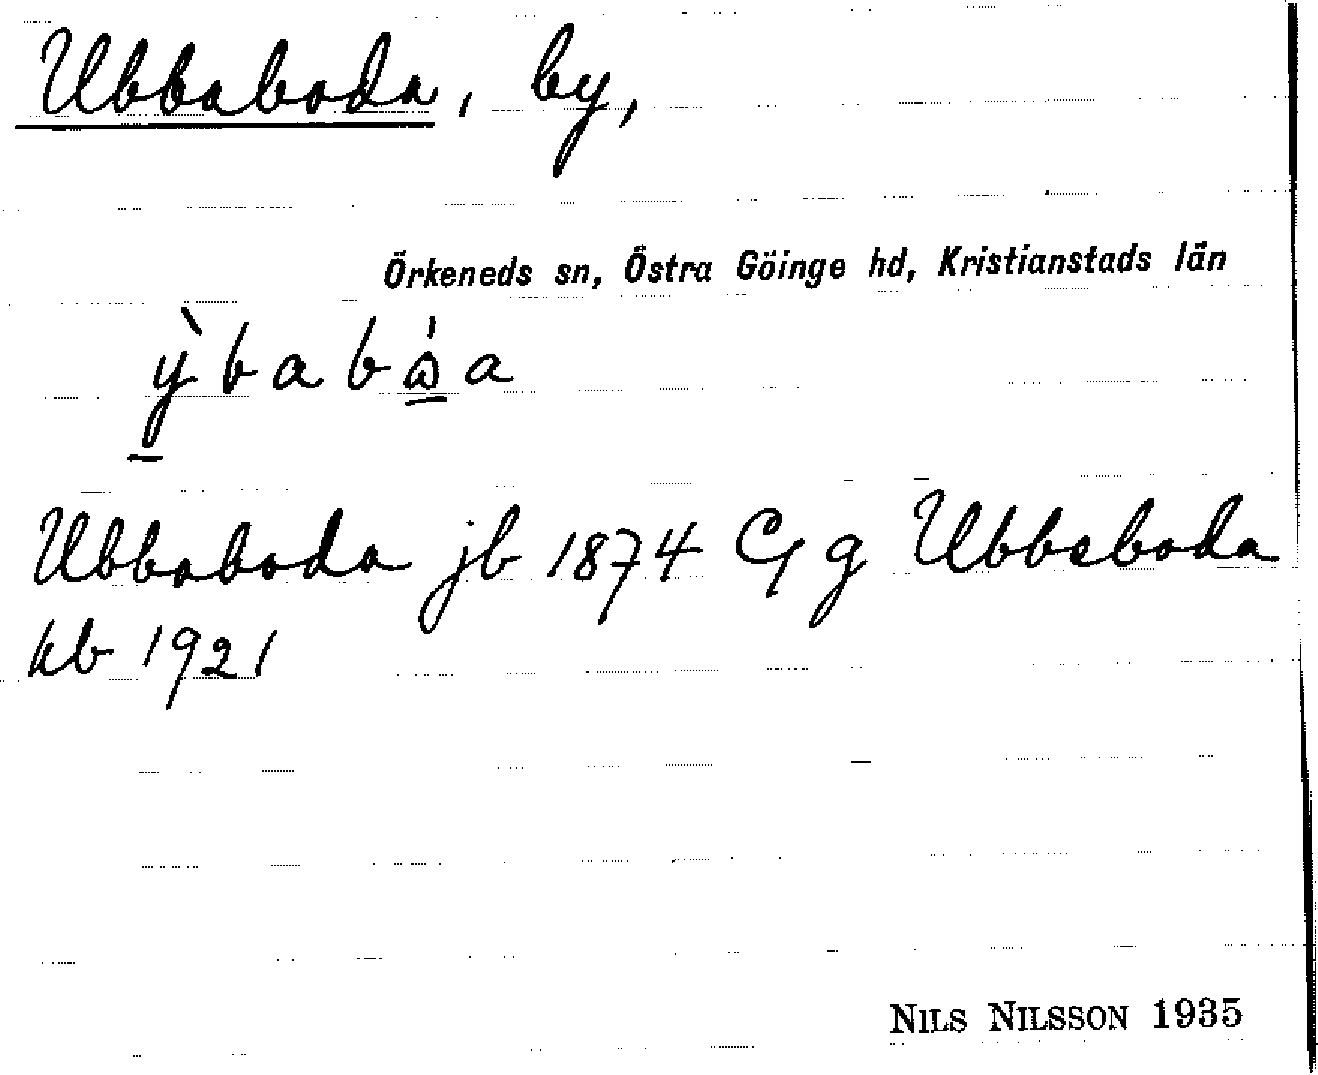 Ubbaboda, by,
Örkeneds sn, Östra Göinge hd, Kristianstads län
Ubbaboda jb 1874 Cg g Ubbeboda
kb 1921
NILS NILSSON 1935